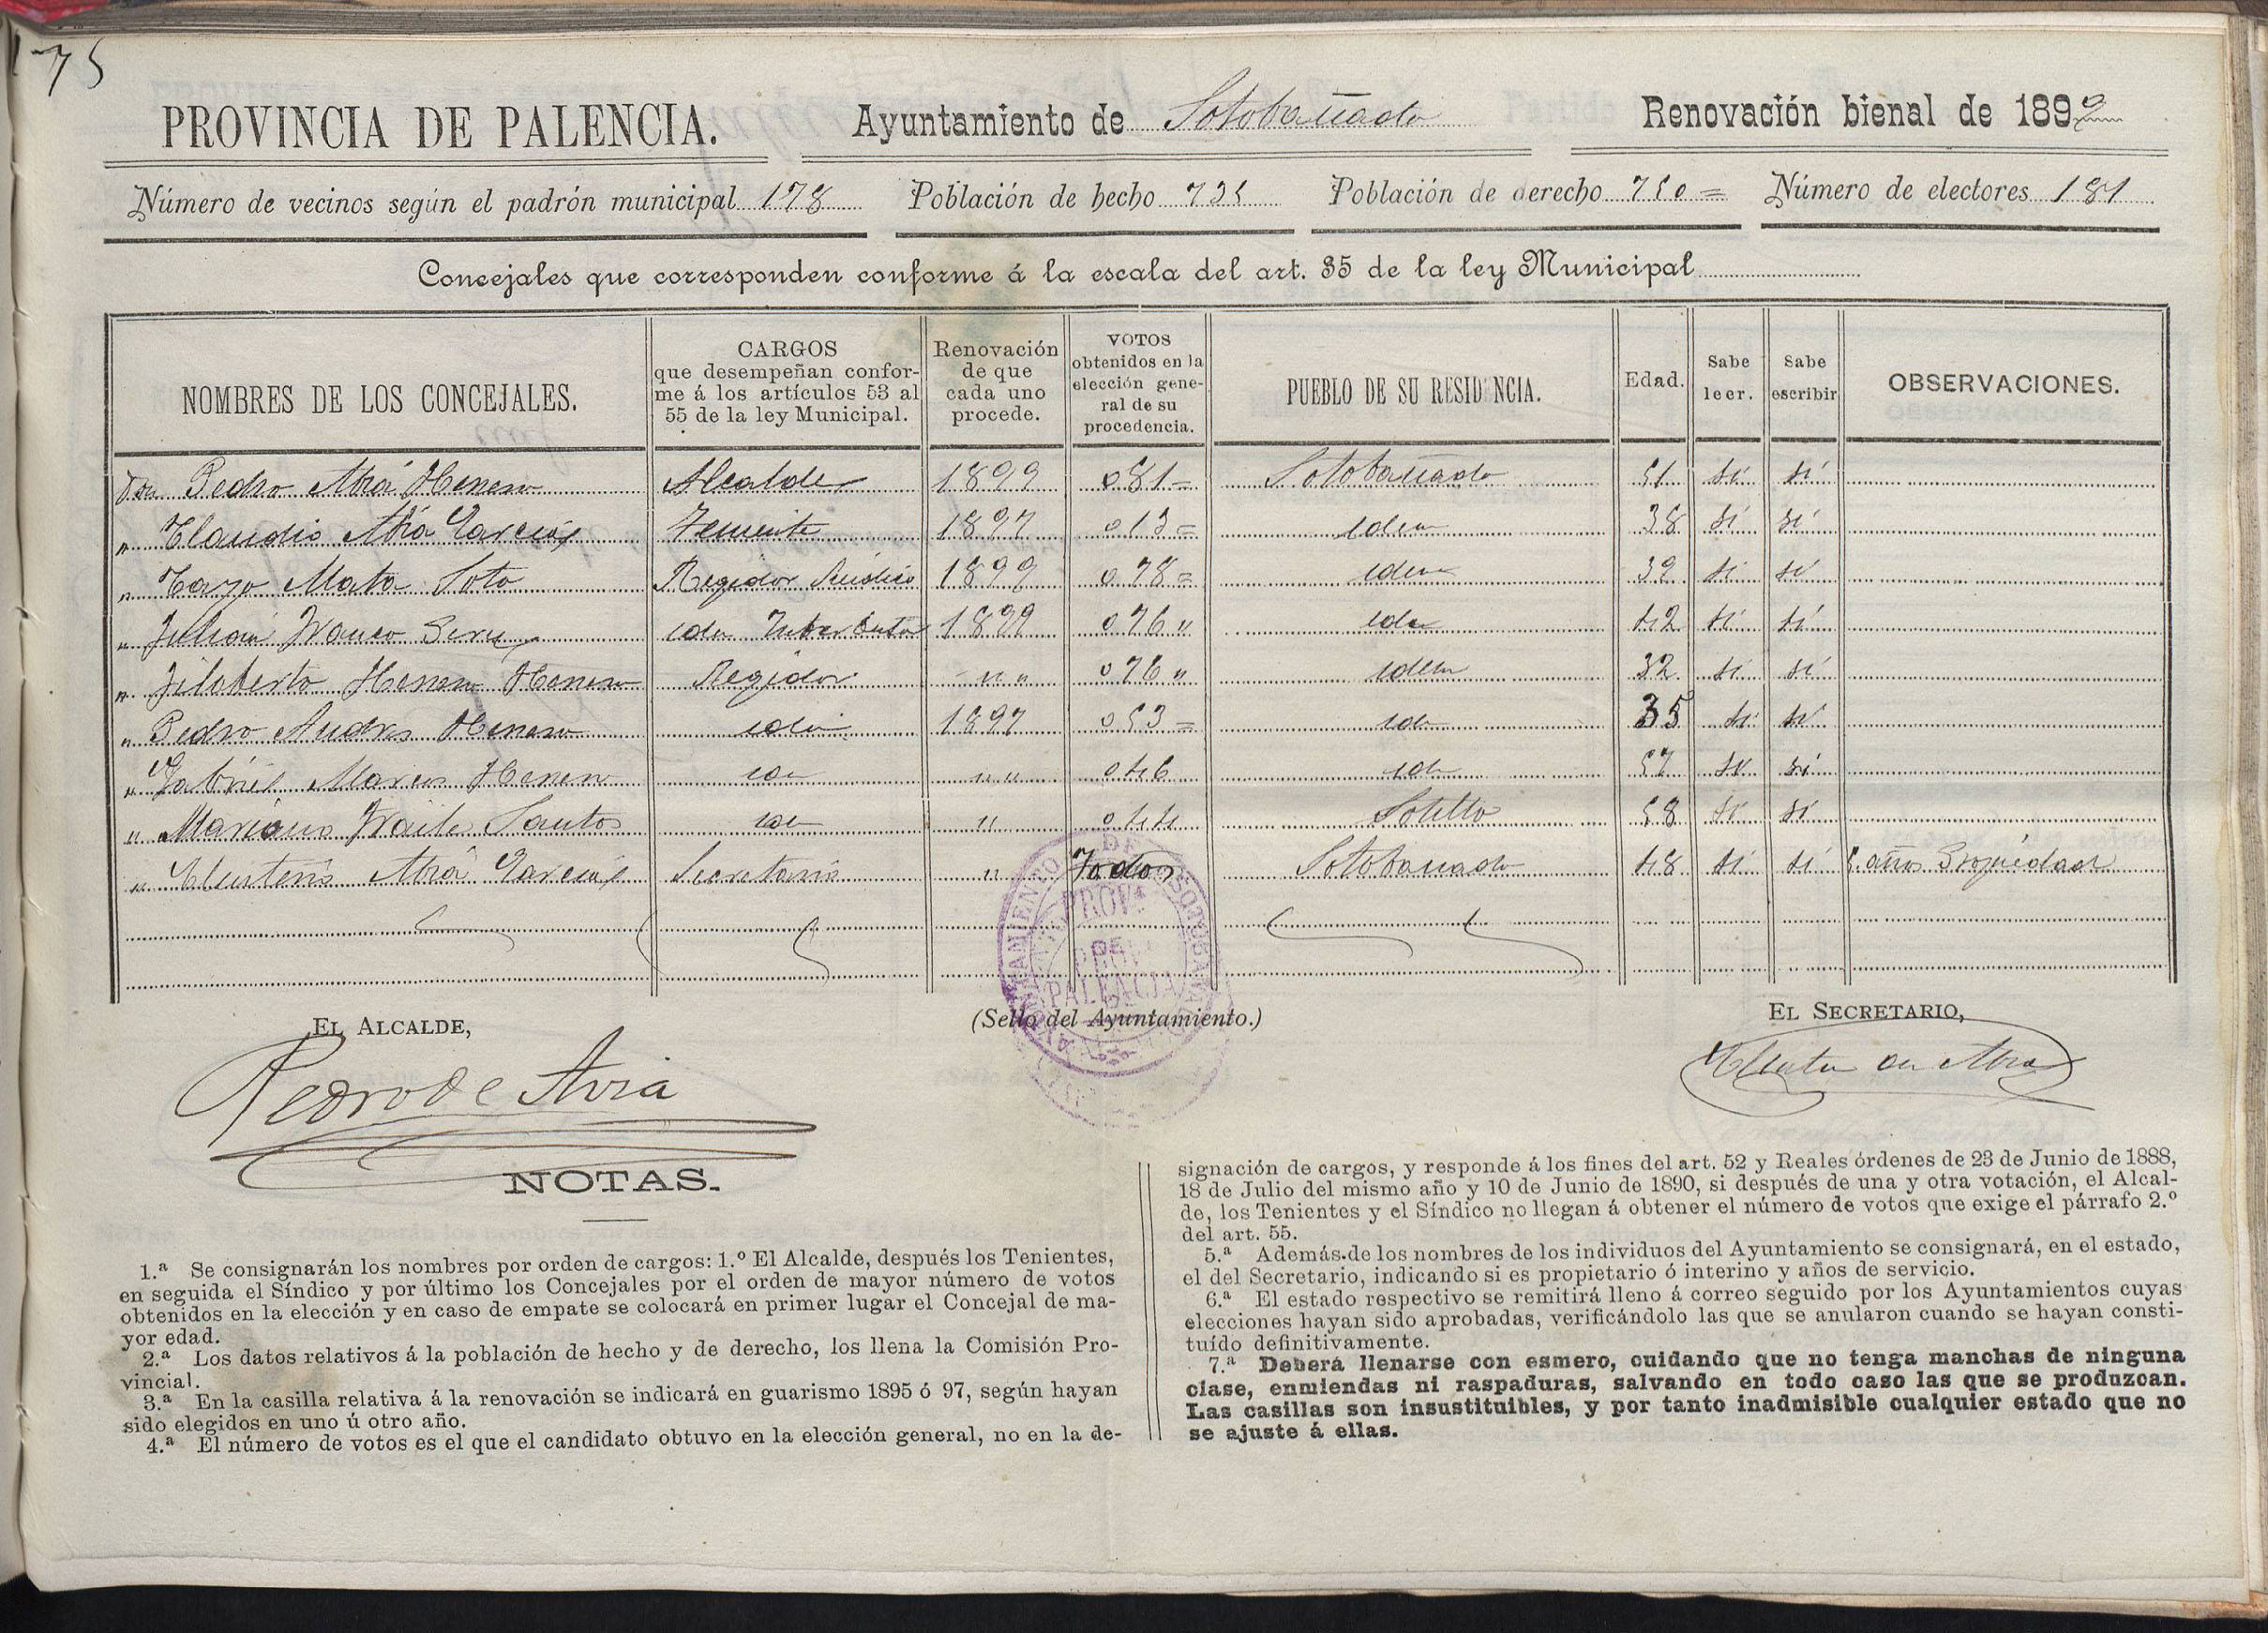 175
PROVINCIA DE PALENCIA. Ayuntamiento de Sotobañado Renovación bienal de 1899
Número de vecinos según el padrón municipal 178 Población de hecho 735 Población de derecho 750 = Número de electores 181
Concejales que corresponden conforme á la escala del art. 35 de la ley Municipal
NOMBRES DE LOS CONCEJALES.
CARGOS
que desempeñan confor-
me á los artículos 53 al
55 de la ley Municipal.
Renovación
de que
cada uno
procede.
VOTOS
obtenidos en la
elección gene-
ral de su
procedencia.
PUEBLO DE SU RESIDENCIA.
Edad.
Sabe
leer.
Sabe
escribir
OBSERVACIONES.
Don Pedro Abia Herrero Alcalde 1899 081 = Sotobañado 51 si si
" Claudio Abia Garcia Teniente 1897 013 = idem 38 si si
" Mata Soto Regidor Sindico 1899 078 = idem 39 si si
" Julian Franco Regidor 1899 076 " idem 42 si si
" Filoberto Herrero Herrero Regidor " " 076 " idem 32 si si
" Pedro Andres Herrero idem 1897 053 = idem 35 si si
" Gabriel Marcos Herrero idem " " 046 idem 57 si si
" Mariano Fraile Santos idem " 044 Sotillo 58 si si
" Abia Garcia Secretario " Todos Sotobañado 48 si si 5 años Propiedad
AYUNTAMIENTO DE SOTOBAÑADO
PROVª
DE
PALENCIA
EL ALCALDE,
(Sello del Ayuntamiento.)
EL SECRETARIO,
Pedro de Avia
de Abia
NOTAS.
1.ª Se consignarán los nombres por orden de cargos: 1.º El Alcalde, después los Tenientes,
en seguida el Síndico y por último los Concejales por el orden de mayor número de votos
obtenidos en la elección y en caso de empate se colocará en primer lugar el Concejal de ma-
yor edad.
2.ª Los datos relativos á la población de hecho y de derecho, los llena la Comisión Pro-
vincial.
3.ª En la casilla relativa á la renovación se indicará en guarismo 1895 ó 97, según hayan
sido elegidos en uno ú otro año.
4.ª El número de votos es el que el candidato obtuvo en la elección general, no en la de-
signación de cargos, y responde á los fines del art. 52 y Reales órdenes de 23 de Junio de 1888,
18 de Julio del mismo año y 10 de Junio de 1890, si después de una y otra votación, el Alcal-
de, los Tenientes y el Síndico no llegan á obtener el número de votos que exige el párrafo 2.º
del art. 55.
5.ª Además de los nombres de los individuos del Ayuntamiento se consignará, en el estado,
el del Secretario, indicando si es propietario ó interino y años de servicio.
6.ª El estado respectivo se remitirá lleno á correo seguido por los Ayuntamientos cuyas
elecciones hayan sido aprobadas, verificándolo las que se anularon cuando se hayan consti-
tuído definitivamente.
7.ª Deberá llenarse con esmero, cuidando que no tenga manchas de ninguna
clase, enmiendas ni raspaduras, salvando en todo caso las que se produzcan.
Las casillas son insustituibles, y por tanto inadmisible cualquier estado que no
se ajuste á ellas.